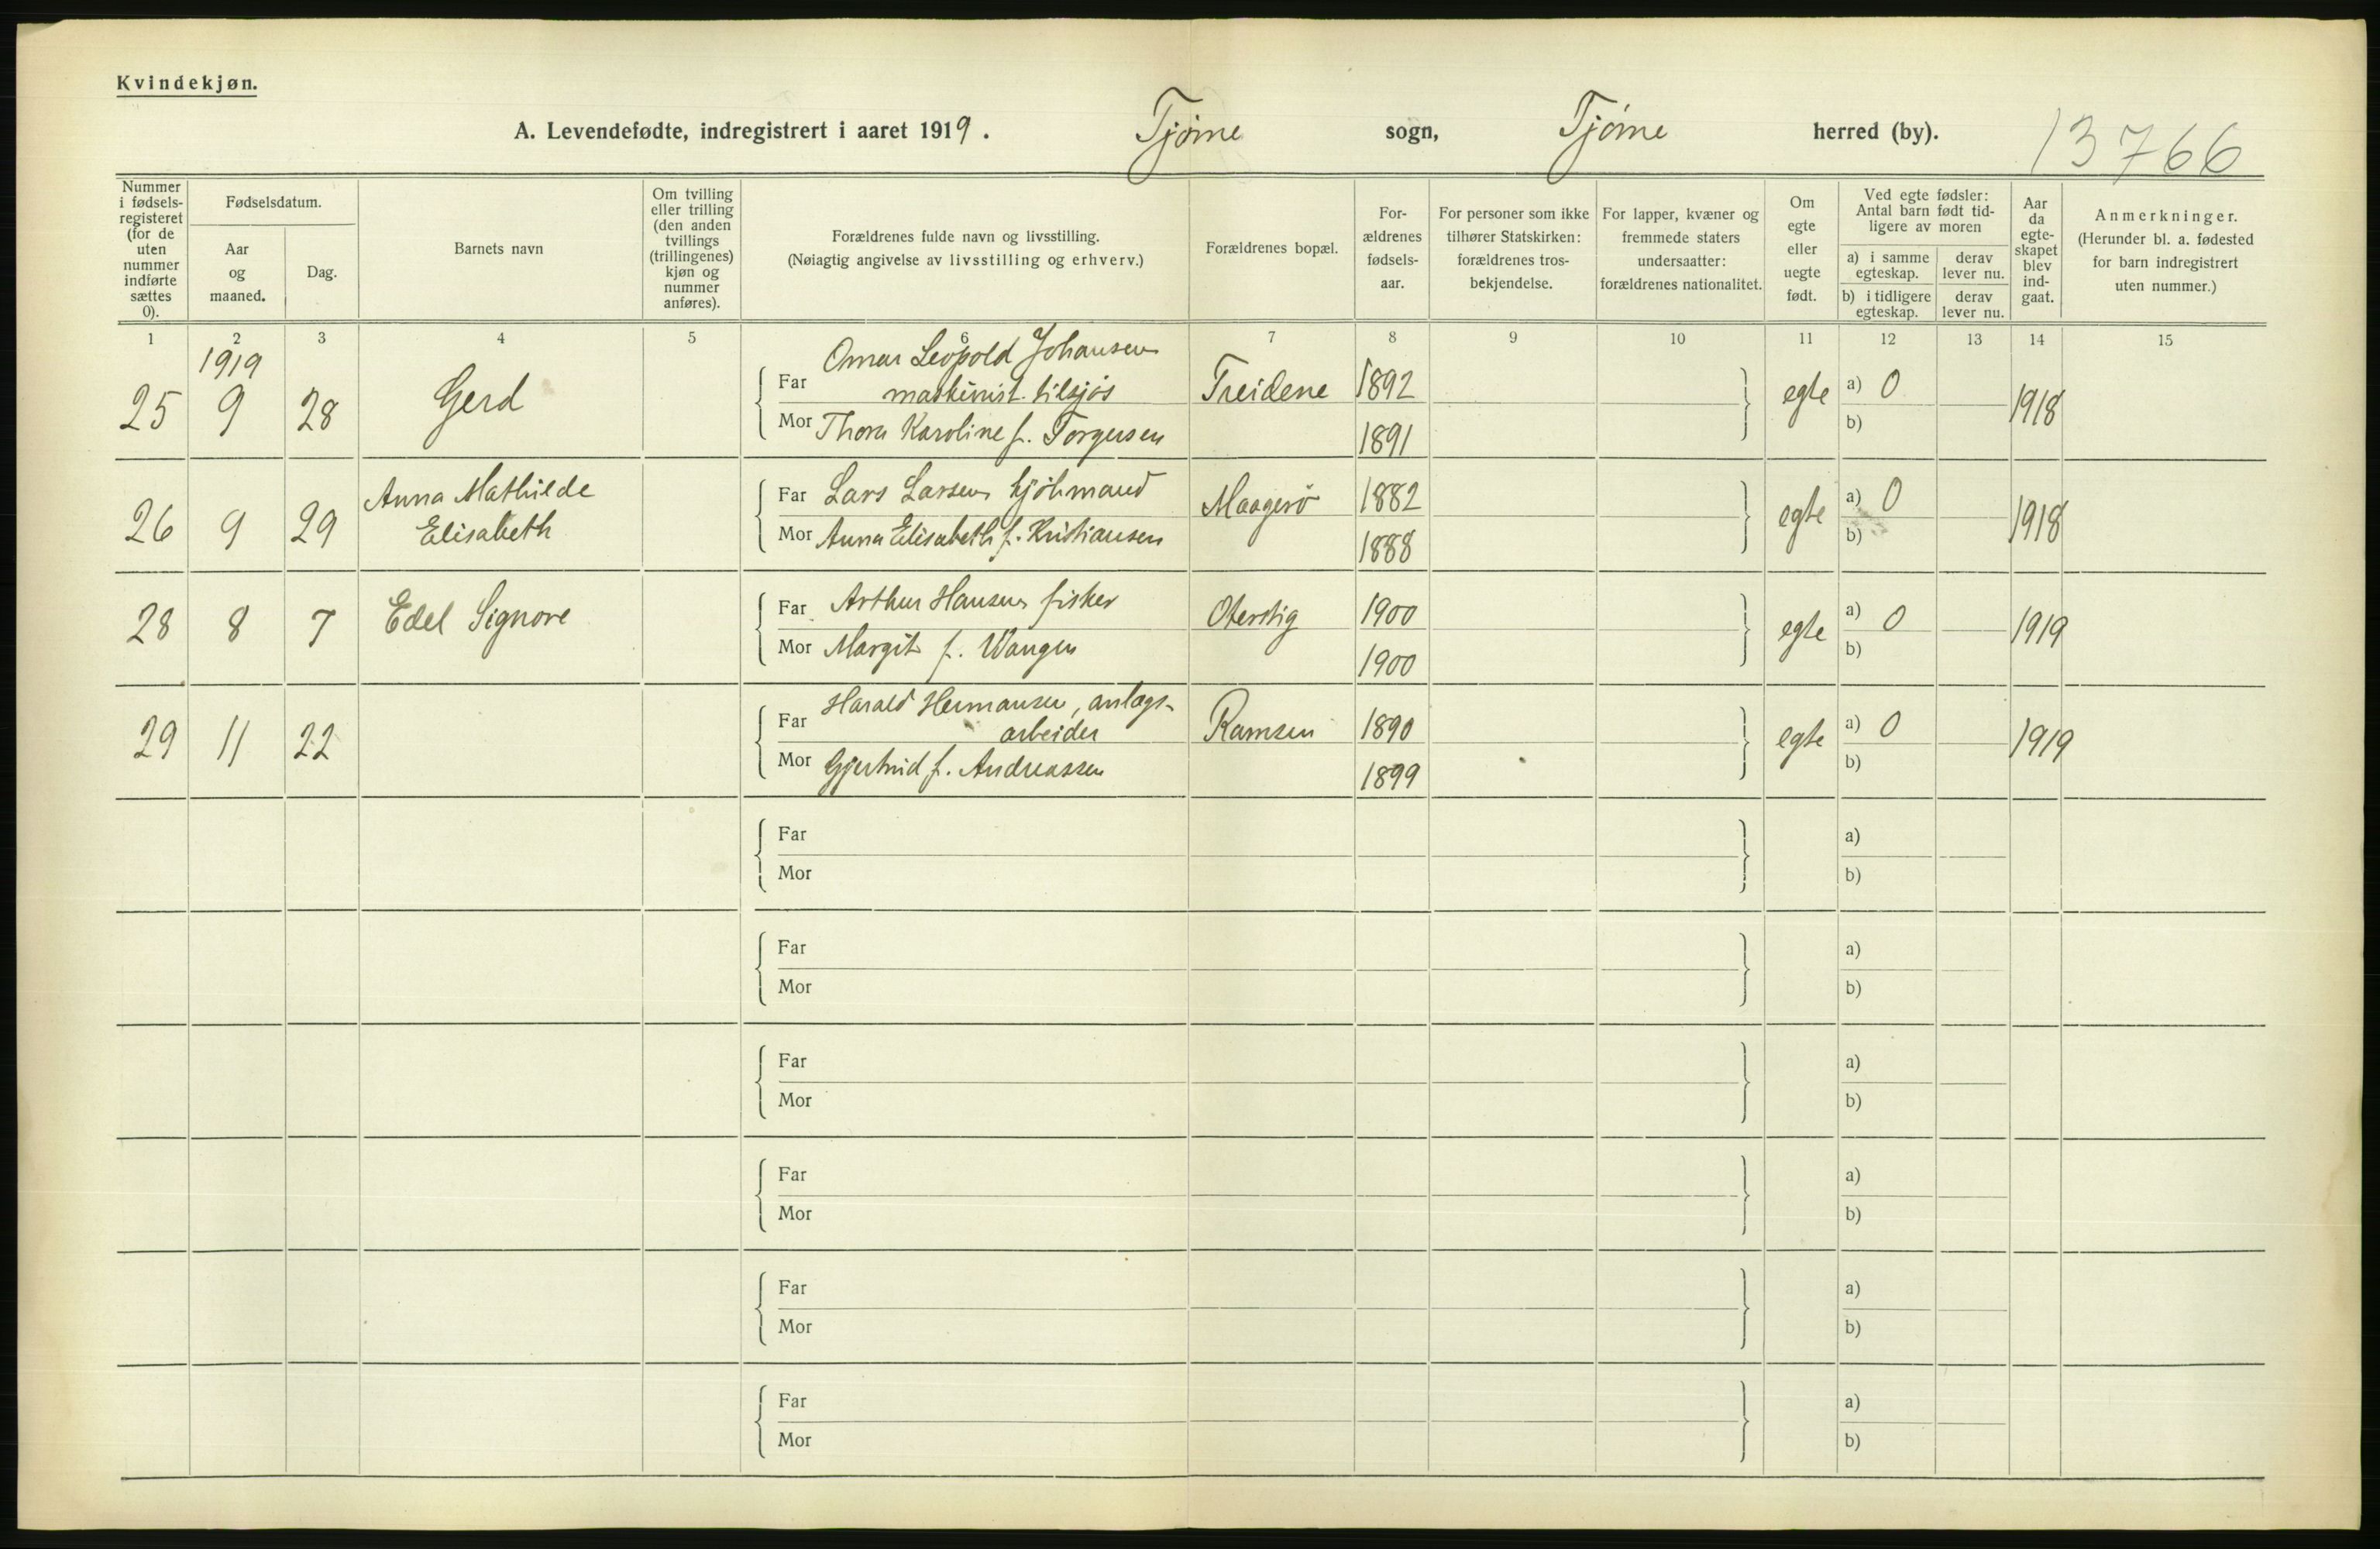 Kvindekjøn.
A. Levendefødte, indregistrert i aaret 1919. Tjøme sogn, Tjøme herred (by). 13766
Nummer i fødselsregisteret (for de uten nummer indførte sættes 0).
Fødselsdatum.
Aar og maaned.
Dag.
Barnets navn
Om tvilling eller trilling (den anden tvillings (trillingenes) kjøn og nummer anføres).
Forældrenes fulde navn og livsstilling.
(Nøiagtig angivelse av livsstilling og erhverv.)
Forældrenes bopæl.
Forældrenes fødselsaar.
For personer som ikke tilhører Statskirken: forældrenes trosbekjendelse.
For lapper, kvæner og fremmede staters undersaatter: forældrenes nationalitet.
Om egte eller uegte født.
Ved egte fødsler: Antal barn født tidligere av moren
a) i samme egteskap.
derav lever nu.
b) i tidligere egteskap.
derav lever nu.
Aar da egteskapet blev indgaat.
Anmerkninger.
(Herunder bl. a. fødested for barn indregistrert uten nummer.)
1 2 3 4 5 6 7 8 9 10 11 12 13 14 15
1919
Omar Leopold Johansen
25 9 28 Gerd Far maskinist tilsjøs Treidene 1892 egte a) 0 1918
Mor Thora Karoline f. Torgersen 1891 b)
26 9 29 Anna Mathilde Far Lars Larsen sjømand Maagerø 1882 egte a) 0 1918
Elisabeth Mor Anna Elisabeth f. Kristiansen 1888 b)
28 8 7 Edel Signore Far Arthur Hansen fisker Oterstig 1900 egte a) 0 1919
Mor Margit f. Wangen 1900 b)
Harald Hermansen, anlægs-
29 11 22 Far arbeider Ramsen 1890 egte a) 0 1919
Mor Gjertrud f. Andreassen 1899 b)
Far a)
Mor b)
Far a)
Mor b)
Far a)
Mor b)
Far a)
Mor b)
Far a)
Mor b)
Far a)
Mor b)